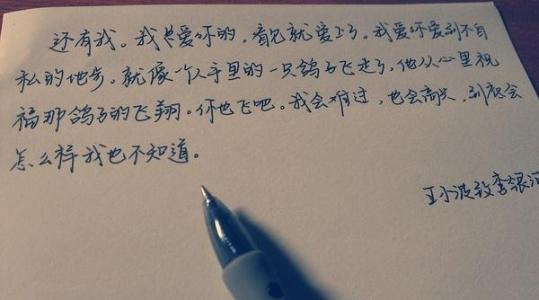 还有我。我是爱你的，看见就爱上了。我爱你爱到不自
私的地步。就像一个人手里的一只鸽子飞走了，他从心里祝
福那鸽子的飞翔。你也飞吧。我会难过，也会高兴，到底会
怎么样我也不知道。
王小波致李银河